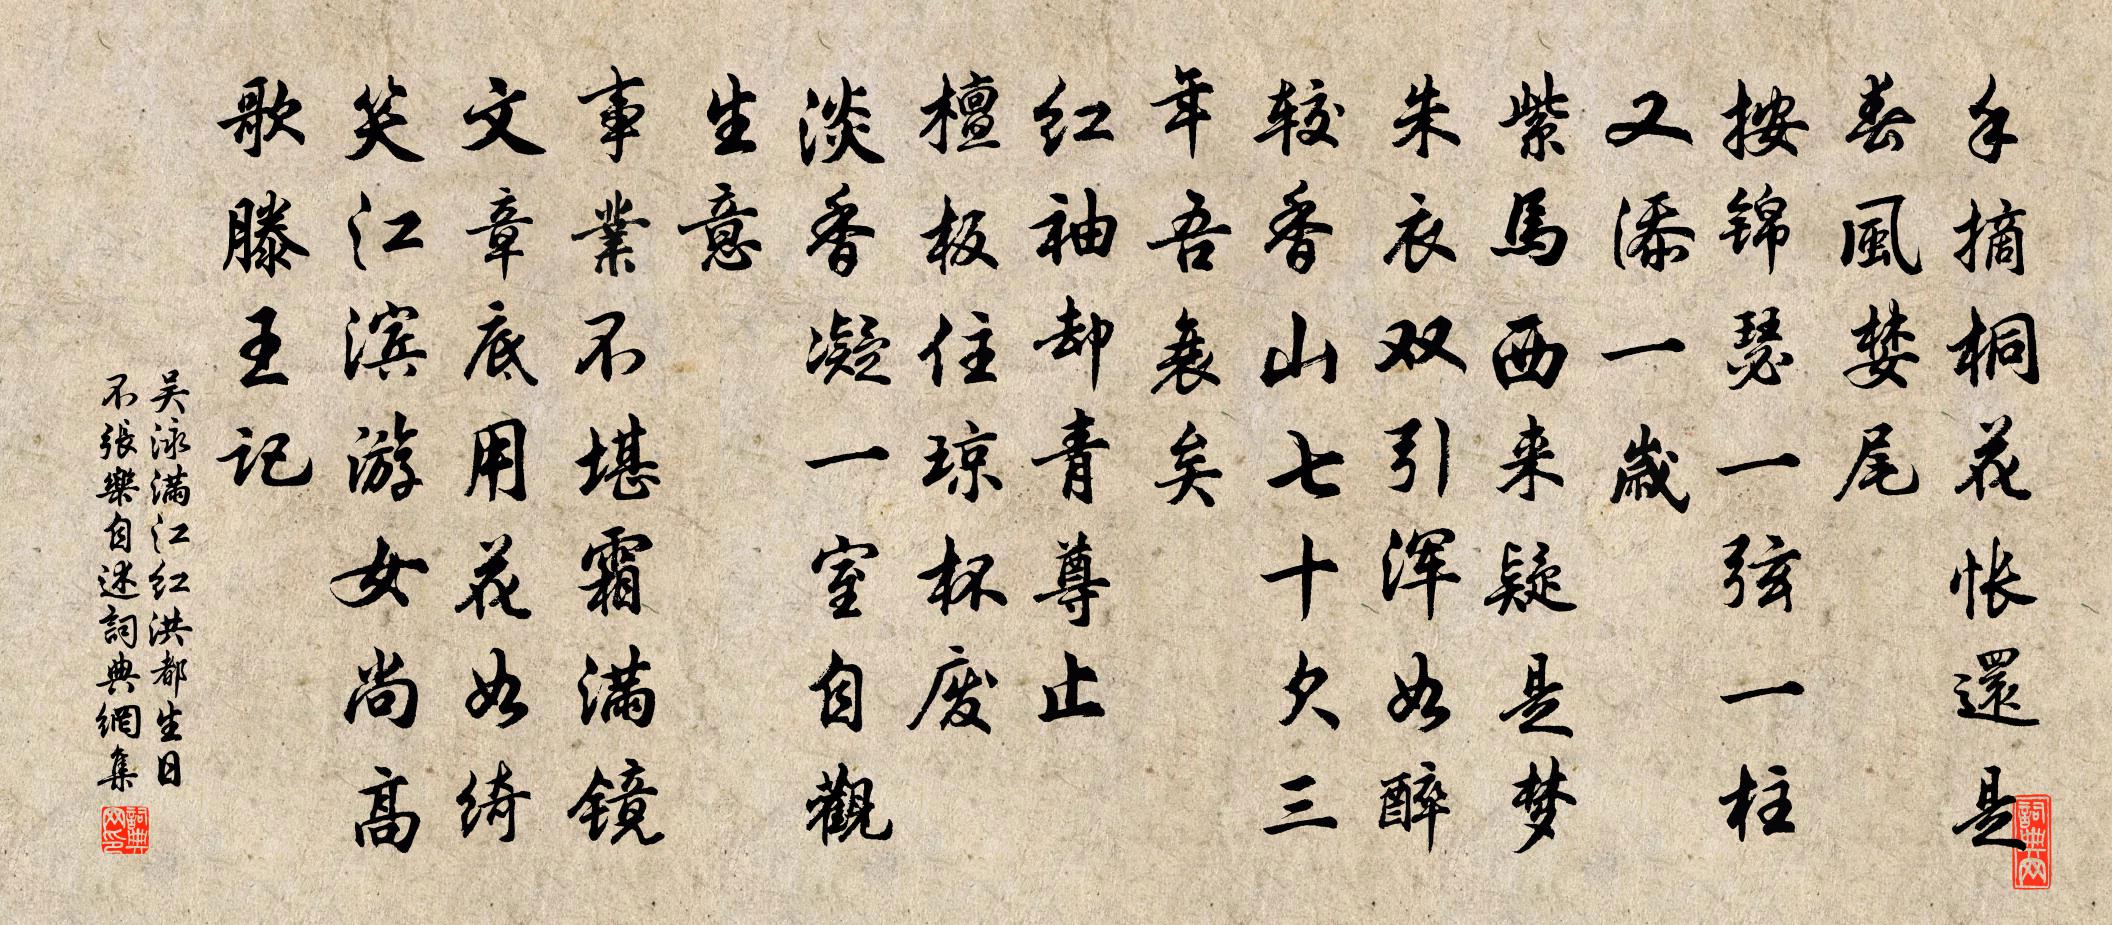 手摘桐花怅還是
春風婪尾
按锦瑟一弦一柱
又添一歳
紫馬西来疑是梦
朱衣双引浑如醉
较香山七十欠三
年吾衰矣
红袖却青尊止
檀板住琼杯废
淡香凝一室自觀
生意
事業不堪霜满镜
文章底用花如绮
笑江滨游女尚高
歌滕王记
吴泳满江红洪都生日
不張樂自述詞典網集
詞典网
詞典网印